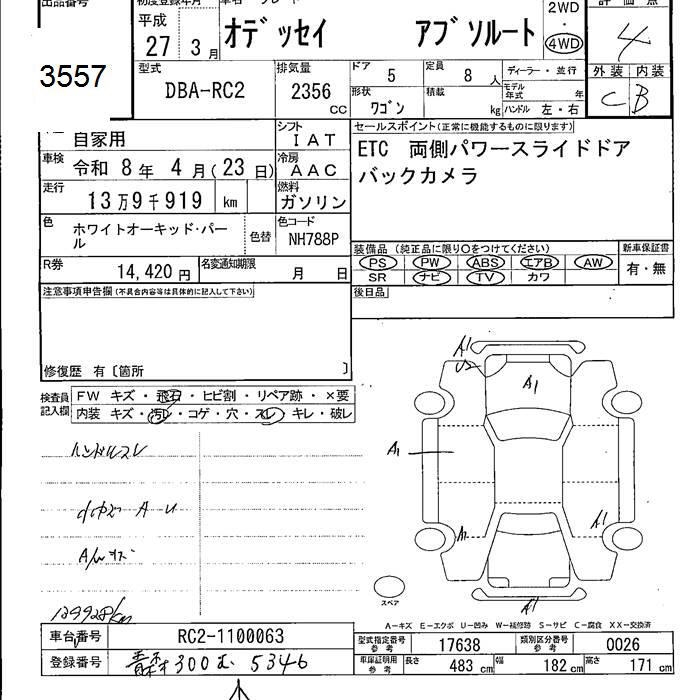 出品番号 初度登録年月 車名 グレード 評価点
平成 2WD
27 3月 オデッセイ アブソルート 4WD 4
3557
型式 排気量 ドア 5 定員 8人 ディーラー・並行 外装 内装
DBA-RC2 2356 cc 形状 ワゴン 積載 kg モデル年式 年 C B
ハンドル 左・右
自家用 シフト IAT
セールスポイント(正常に機能するものに限ります)
車検 令和 8年 4月(23日) 冷房 AAC
ETC 両側パワースライドドア
走行 13万9千919 km 燃料 ガソリン
バックカメラ
色 ホワイトオーキッド・パール 色替 色コード NH788P
装備品 (純正品に限り○をつけてください) 新車保証書
PS PW ABS エアB AW 有・無
SR ナビ TV カワ
R券 14,420円 名変通知期限 月 日
後日品
注意事項申告欄(不具合内容等は具体的に記入して下さい)
修復歴 有〔箇所 〕
検査員記入欄 FW キズ・飛石・ヒビ割・リペア跡・×要
内装 キズ・汚レ・コゲ・穴・スレ・キレ・破レ
ハンドルスレ
A U
A/Wキズ
139928km
A1
U2
A1
A1
A1
A1
A1
スペア
A-キズ E-エクボ U-凹み W-補修跡 S-サビ C-腐食 XX-交換済
車台番号 RC2-1100063
登録番号 青森 300 む 5346
型式指定番号参考 17638 類別区分番号参考 0026
車庫証明用参考 長さ 483 cm 幅 182 cm 高さ 171 cm